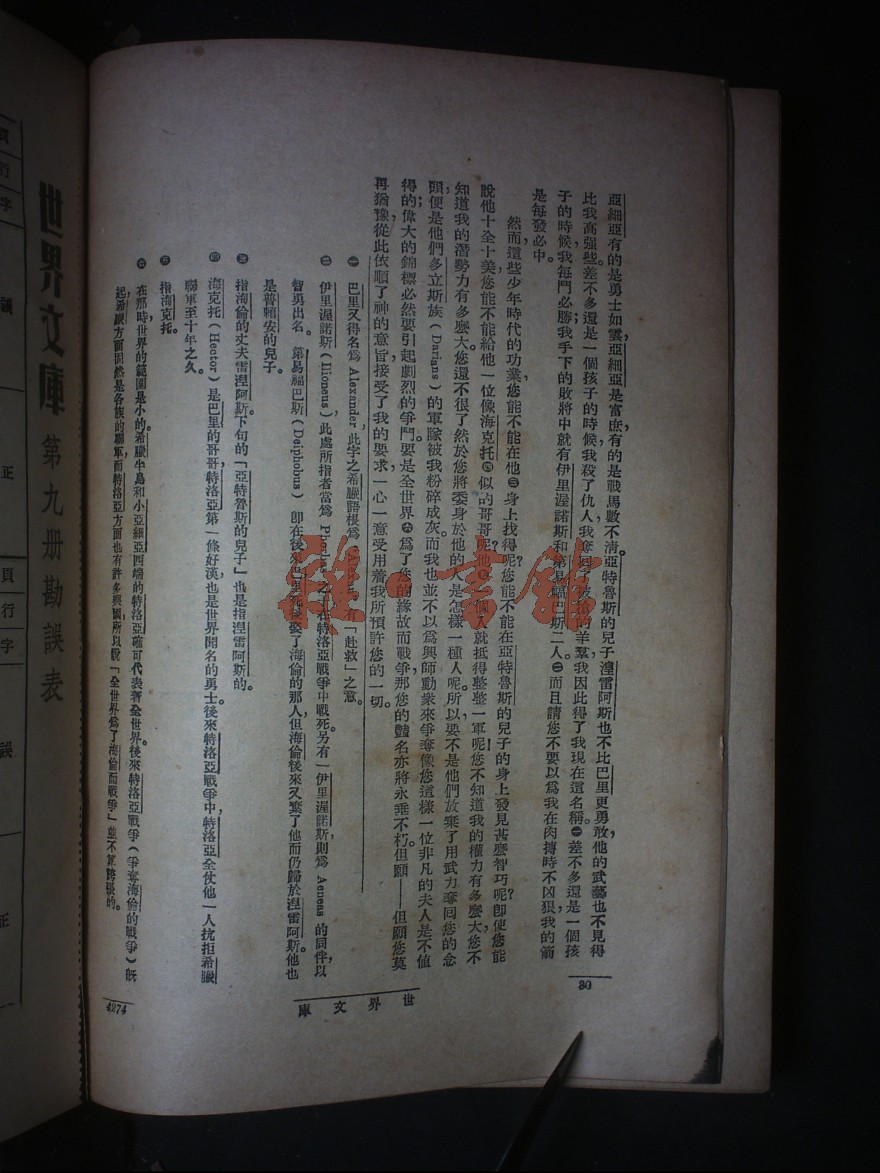 亞細亞有的是勇士如雲,亞細亞是富庶,有的是戰馬數不清。亞特魯斯的兒子湼雷阿斯也不比巴里更勇敢,他的武藝也不見得
比我高強些。差不多還是一個孩子的時候,我殺了仇人,我奪回了被搶的羊羣,我因此得了我現在這名稱。㊀差不多還是一個孩
子的時候,我每鬥必勝,我手下的敗將中就有伊里渥諾斯和第易福巴斯二人。㊁而且請您不要以爲我在肉搏時不凶狠,我的箭
是每發必中。
然而這些少年時代的功業,您能不能在他㊂身上找得呢?您能不能在亞特魯斯的兒子的身上發見甚麼智巧呢?卽使您能
說他十全十美,您能不能給他一位像海克托㊃似的哥哥呢?他㊄一個人就抵得整整一軍呢。您不知道我的權力有多麼大,您不
知道我的潛勢力有多麼大。您還不很了然於您將委身於他的人是怎樣一種人呢。所以要不是他們放棄了用武力奪回您的念
頭,便是他們多立斯族(Darians)的軍隊被我粉碎成灰。而我也並不以爲興師動衆來爭奪像您這樣一位非凡的夫人是不值
得的;偉大的錦標必然要引起劇烈的爭鬥。要是全世界㊅爲了您的緣故而戰爭,那您的豔名亦將永垂不朽。但願——但願您莫
再猶豫,從此依順了神的意旨,接受了我的要求,一心一意受用着我所預許您的一切。
㊀ 巴里又得名爲 Alexander,此字之希臘語根爲 有「赴救」之意。
㊁ 伊里渥諾斯(Ilioneus),此處所指者當爲 之子,在特洛亞戰爭中戰死。另有一伊里渥諾斯,則爲 Aeneas 的同伴,以
智勇出名。第易福巴斯(Deiphobus)卽在後來巴里死後娶了海倫的那人,但海倫後來又棄了他而仍歸於湼雷阿斯。他也
是普賴安的兒子。
㊂ 指海倫的丈夫雷湼阿斯。下句的「亞特魯斯的兒子」也是指湼雷阿斯的。
㊃ 海克托(Hector)是巴里的哥哥,特洛亞第一條好漢,也是世界聞名的勇士。後來特洛亞戰爭中,特洛亞全仗他一人抗拒希臘
聯軍至十年之久。
㊄ 指海克托。
㊅ 在那時,世界的範圍是小的。希臘牛島和小亞細亞西端的特洛亞確可代表着全世界。後來特洛亞戰爭(爭奪海倫的戰爭)旣
起,希臘方面固然是各族的聯軍,而特洛亞方面也有許多與國,所以說「全世界爲了海倫而戰爭」並不算誇張的。
80
世界文庫
4274
世界文庫 第九册勘誤表
頁 行 字 誤 正
頁 行 字 誤 正
雅書館